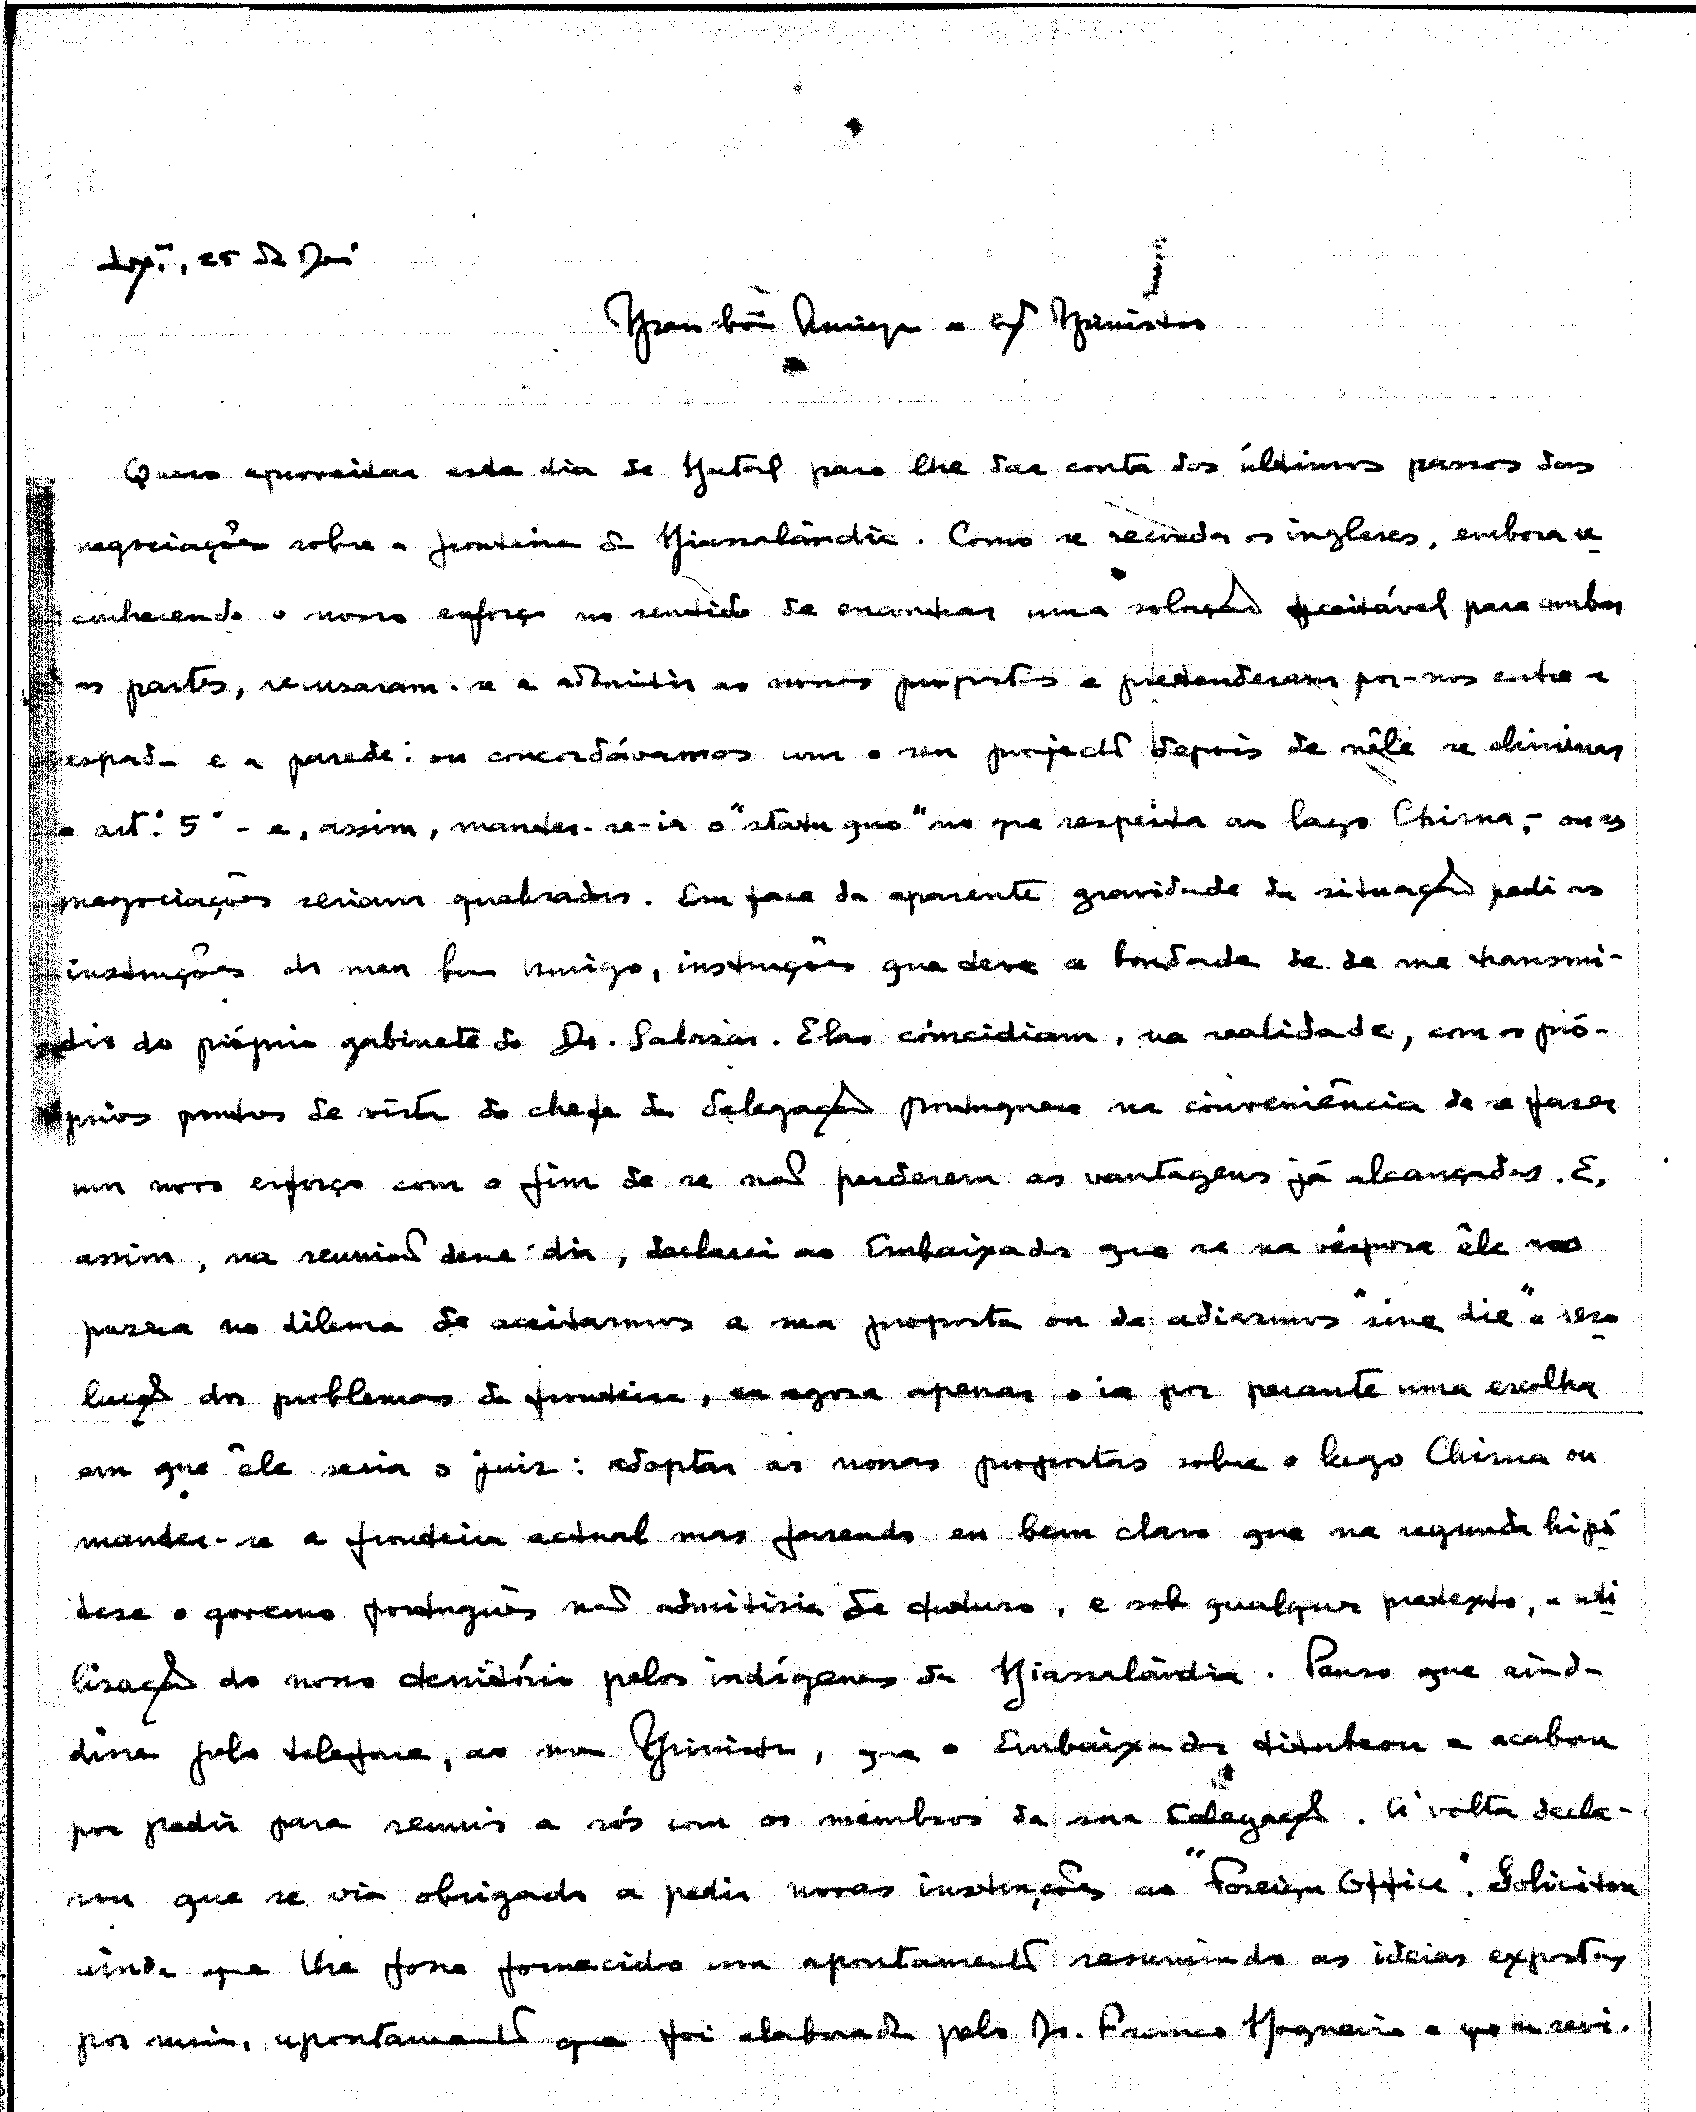 25 de Dez.
Meu bom Amigo e Exº Ministro
Quero aproveitar este dia de Natal para lhe dar conta dos últimos passos das
negociações sobre a fronteira da Niassalândia. Como se recorda os ingleses, embora re
conhecendo o nosso esforço no sentido de encontrar uma solução aceitável para ambas
as partes, recusaram-se a admitir as nossas propostas e pretenderam pôr-nos entre a
espada e a parede: ou concordávamos com o seu projecto depois de nêle se eliminar
o artº. 5º - e, assim, manter-se-ia o "statu quo" no que respeita ao lago Chirua, - ou as
negociações seriam quebradas. Em face da aparente gravidade da situação pedi as
instruções do meu bom Amigo, instruções que teve a bondade de de me transmi-
tir do próprio gabinete do Dr. Salazar. Elas coincidiam, na realidade, com os pró-
prios pontos de vista do chefe da delegação portuguesa na conveniência de se fazer
um novo esforço com o fim de se não perderem as vantagens já alcançadas. E,
assim, na reunião desse dia, declarei ao Embaixador que se na véspera êle nos
pusera no dilema de aceitarmos a sua proposta ou de adiarmos "sine die" a reso
lução dos problemas da fronteira, eu agora apenas o ia pôr perante uma escolha
em que êle seria o juiz: adoptar as nossas propostas sobre o lago Chirua ou
manter-se a fronteira actual mas fazendo eu bem claro que na segunda hipó
tese o governo português não admitiria de futuro, e sob qualquer pretexto, a uti
lização do nosso território pelos indígenas da Niassalândia. Penso que ainda
disse pelo telefone, ao meu Ministro, que o Embaixador titubeou e acabou
por pedir para reunir a sós com os membros da sua delegação. À volta decla-
rou que se via obrigado a pedir novas instruções ao "Foreign Office". Solicitou
ainda que lhe fosse fornecido um apontamento resumindo as ideias expostas
por mim, apontamento que foi elaborado pelo Dr. Franco Nogueira e que eu revi.